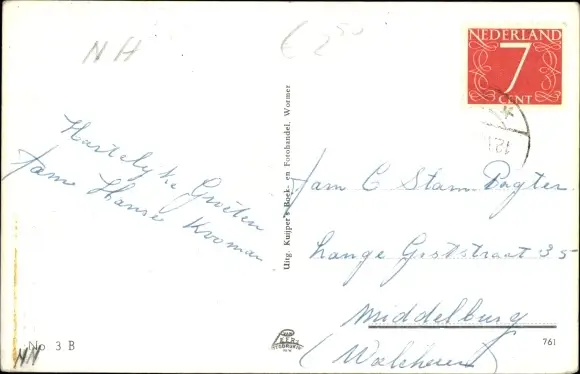 NH
€ 2,50
NEDERLAND
7
CENT
Hartelijke Groeten
fam Hanse Kooman
Uitg. Kuijper's Boek- en Fotohandel, Wormer
fam C Stam-Dogter
Lange Geststraat 35
Middelburg
(Walcheren)
No 3 B
NN
761